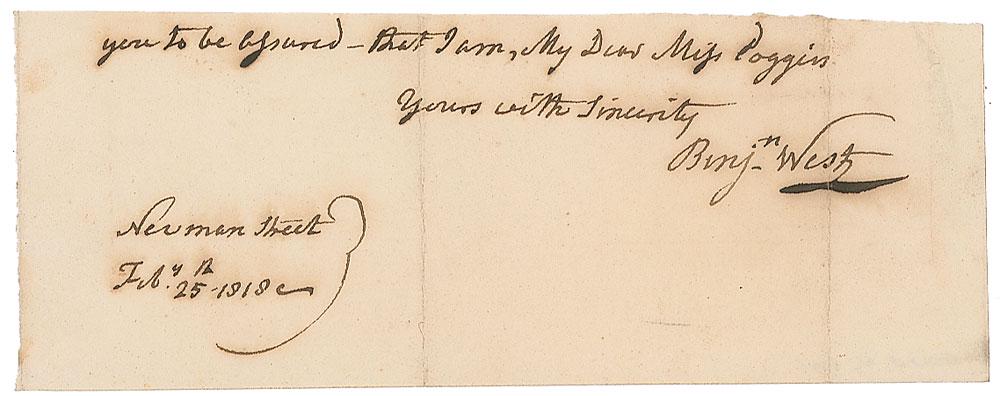 you to be assured – that I am, My Dear Miss Poggin
Yours with Sincerity
Benjn West
Newman Street
Feby 25th 1818